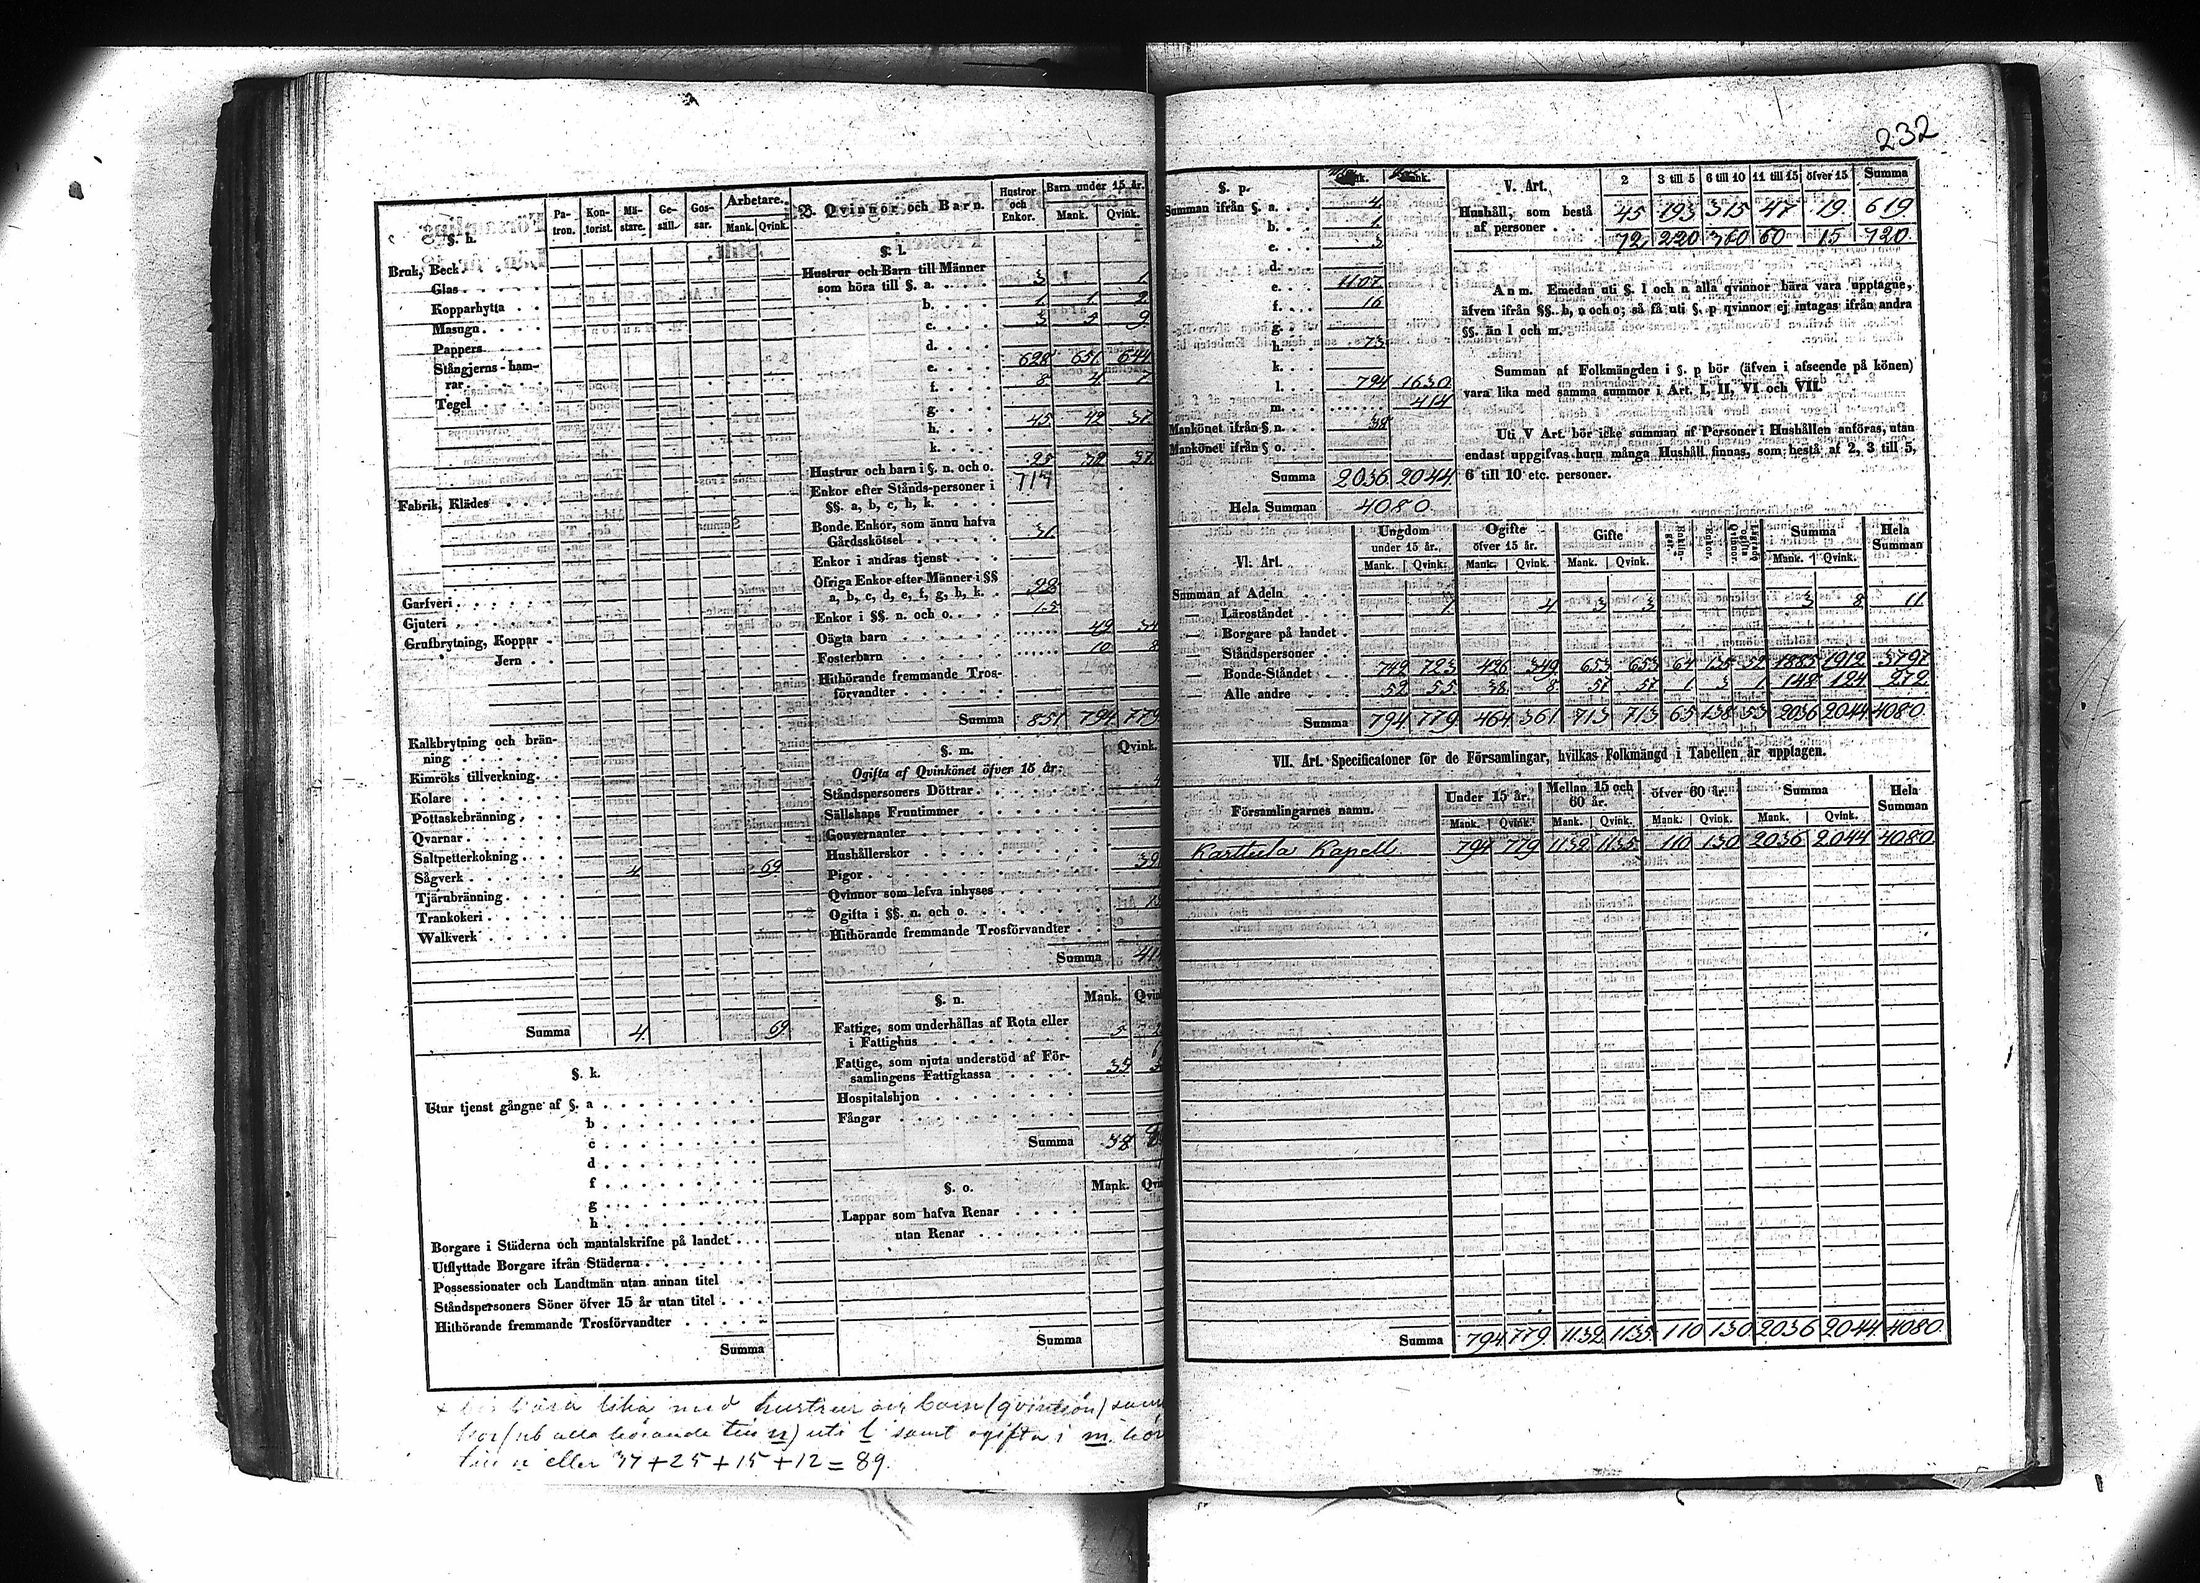 232
§. h.
Pa-tron. Kon-torist. Mä-stare. Ge-säll. Gos-sar. Arbetare. Mank. Qvink.
Bruk, Beck
Glas
Kopparhytta
Masugn
Pappers
Stångjerns-ham-
rar
Tegel
Fabrik, Klädes
Garfveri
Gjuteri
Grufbrytning, Koppar
Jern
Kalkbrytning och brän-
ning
Kimröks tillverkning
Kolare
Pottaskebränning
Qvarnar
Saltpetterkokning
Sågverk 4 69
Tjärubränning
Trankokeri
Walkverk
Summa 4. 69.
§. k.
Utur tjenst gångne af §. a
b
c
d
f
g
h
Borgare i Städerna och mantalskrifne på landet
Utflyttade Borgare ifrån Städerna
Possessionater och Landtmän utan annan titel
Ståndspersoners Söner öfver 15 år utan titel
Hithörande fremmande Trosförvandter
Summa
B. Qvinnor och Barn. Hustror och Enkor. Barn under 15 år. Mank. Qvink.
§. l.
Hustrur och Barn till Männer
som höra till §. a. 3 1.
b. 1. 1. 2.
c. 3 5 9.
d.
e. 628 651 644
f. 8 4
g.
h. 45. 42 37
k.
Hustrur och barn i §. n. och o. 25 38 37
Enkor efter Stånds-personer i
§§. a, b, c, h, k.
Bonde Enkor, som ännu hafva
Gårdsskötsel 31.
Enkor i andras tjenst
Öfriga Enkor efter Männer i §§
a, b, c, d, e, f, g, h, k. 92
Enkor i §§. n. och o. 15
Oägta barn 49 34
Fosterbarn 10 8
Hithörande fremmande Tros-
förvandter
Summa 851. 794 779
§. m. Qvink.
Ogifta af Qvinkönet öfver 15 år.
Ståndspersoners Döttrar 4
Sällskaps Fruntimmer
Gouvernanter
Hushållerskor
Pigor
Qvinnor som lefva inhyses
Ogifta i §§. n. och o.
Hithörande fremmande Trosförvandter
Summa
§. n. Mank.
Fattige, som underhållas af Rota eller
i Fattighus 5
Fattige, som njuta understöd af För-
samlingens Fattigkassa
Hospitalshjon
Fångar
Summa 38
§. o. Mank.
Lappar som hafva Renar
utan Renar
Summa
lika med hustrur och barn (qvinkön)
eller 37+25+15+12=89.
§. p.
Summan ifrån §. a. 4
b. 1.
c. 3
d.
e. 1107
f. 16
g.
h. 73
k.
l. 794 1630
m. 414
Mankönet ifrån § n. 38
Mankönet ifrån § o.
Summa 2036. 2044.
Hela Summan 4080.
V. Art. 2 3 till 5 6 till 10 11 till 15 öfver 15 Summa
Hushåll, som bestå
af personer 45 193 315 47 19. 619
72 220 360 60 15 720
Anm. Emedan uti §. l och n alla qvinnor böra vara upptagne,
äfven ifrån §§. h, n och o; så få uti §. p qvinnor ej intagas ifrån andra
§§. än l och m.
Summan af Folkmängden i §. p bör (äfven i afseende på könen)
vara lika med samma summor i Art. I, II, VI och VII.
Uti V Art. bör icke summan af Personer i Hushållen anföras, utan
endast uppgifvas huru många Hushåll finnas, som bestå af 2, 3 till 5,
6 till 10 etc. personer.
VI. Art. Ungdom under 15 år. Ogifte öfver 15 år. Gifte Enklin-gar. Enkor. Lägrade Ogifta Qvinnor. Summa Hela Summan
Mank. Qvink. Mank. Qvink. Mank. Qvink. Mank. Qvink.
Summan af Adeln
Läroståndet 1. 4 3 3 3 8 11
Borgare på landet
Ståndspersoner
Bonde-Ståndet 742 723 426 349 653 653 64 135 52 1885 1912 3797
Alle andre 52 55 38 8 57 57 1 3 1 148 124 272
Summa 794 779 464 361 713 713 65 138 53 2036 2044 4080
VII. Art. Specificatoner för de Församlingar, hvilkas Folkmängd i Tabellen är upptagen.
Församlingarnes namn. Under 15 år. Mellan 15 och 60 år. öfver 60 år. Summa Hela Summan
Mank. Qvink. Mank. Qvink. Mank. Qvink. Mank. Qvink.
Karttula Kapell 794 779 1132 1135 110 130 2036 2044 4080
Summa 794 779. 1132 1135 110 130 2036 2044 4080.